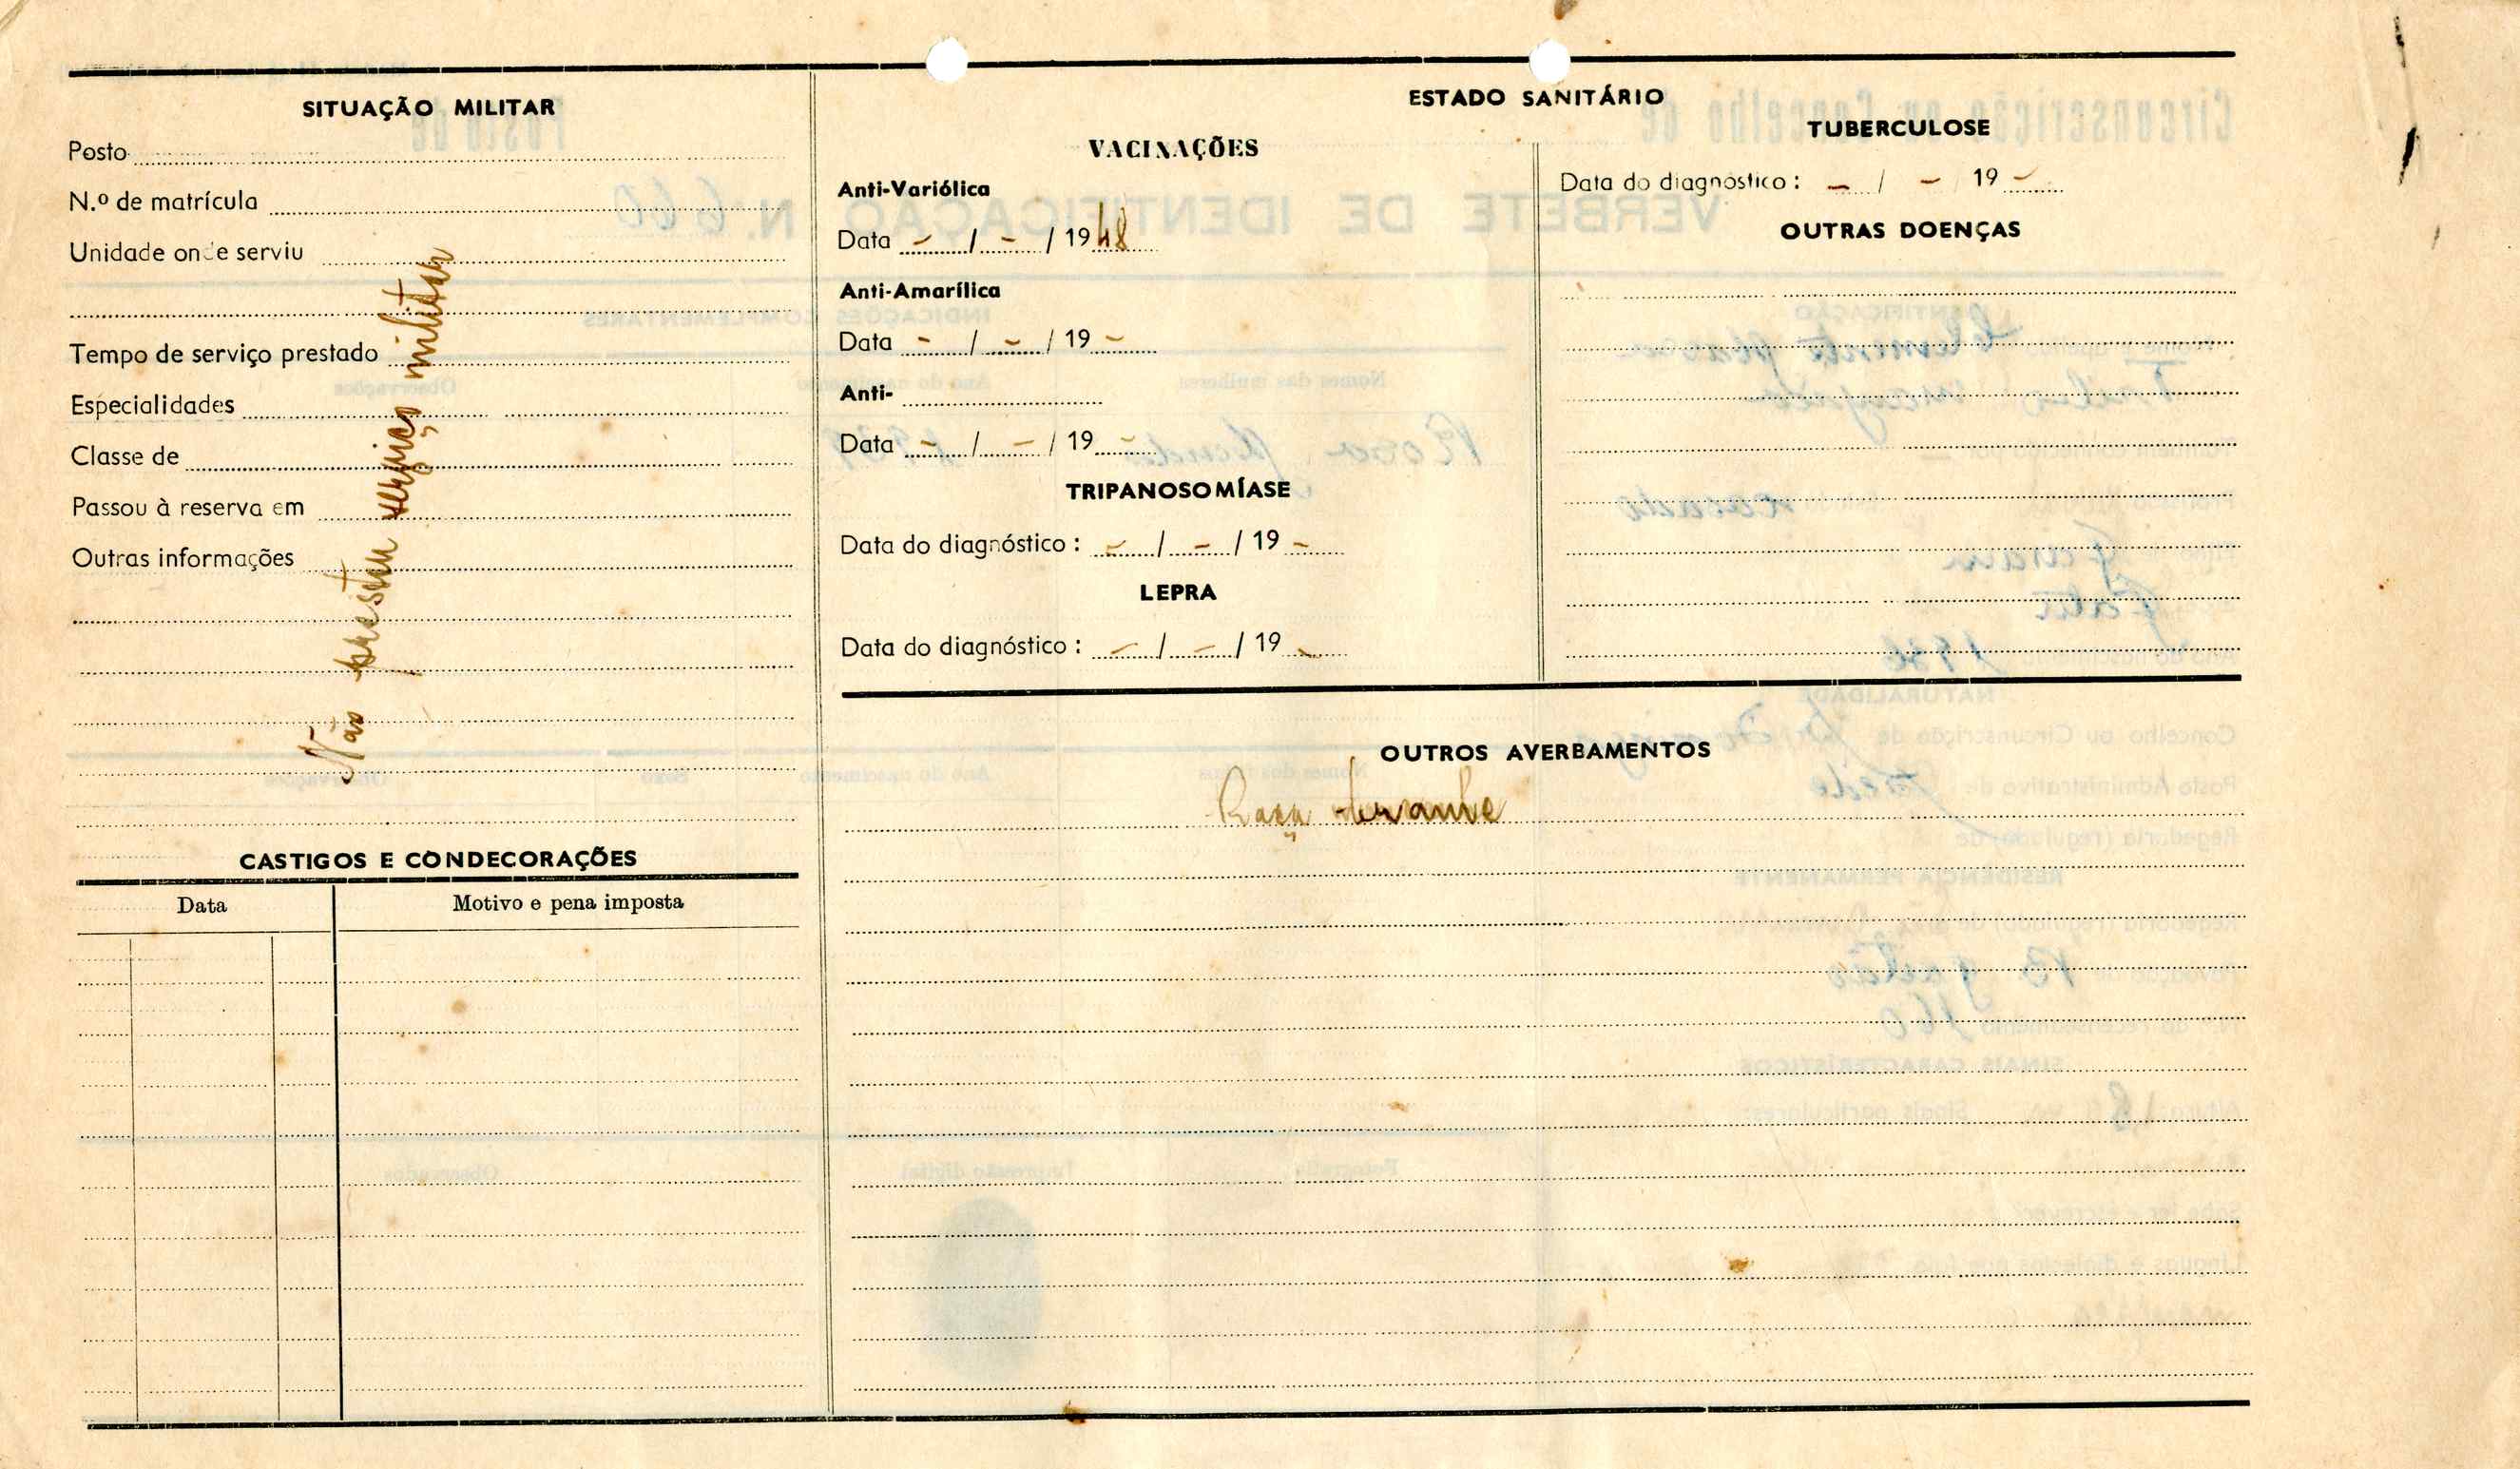 SITUAÇÃO MILITAR
Posto
N.º de matrícula
Unidade onde serviu
Tempo de serviço prestado
Especialidades
Classe de
Passou à reserva em
Outras informações
Não prestou serviço militar
CASTIGOS E CONDECORAÇÕES
Data
Motivo e pena imposta
ESTADO SANITÁRIO
VACINAÇÕES
Anti-Variólica
Data - / - / 1948
Anti-Amarílica
Data - / - / 19 -
Anti-
Data - / - / 19 -
TRIPANOSOMÍASE
Data do diagnóstico : - / - / 19 -
LEPRA
Data do diagnóstico : - / - / 19 -
TUBERCULOSE
Data do diagnóstico : - / - 19 -
OUTRAS DOENÇAS
OUTROS AVERBAMENTOS
Raça